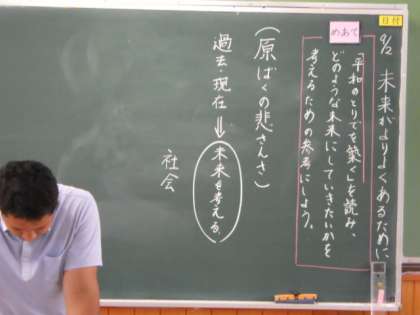 日付
9/2 未来がよりよくあるために
めあて
「平和のとりでを築く」を読み、
どのような未来にしていきたいかを
考えるための参考にしよう。
(原ばくの悲さんさ)
過去・現在 ⇒ 未来を考える。
社会